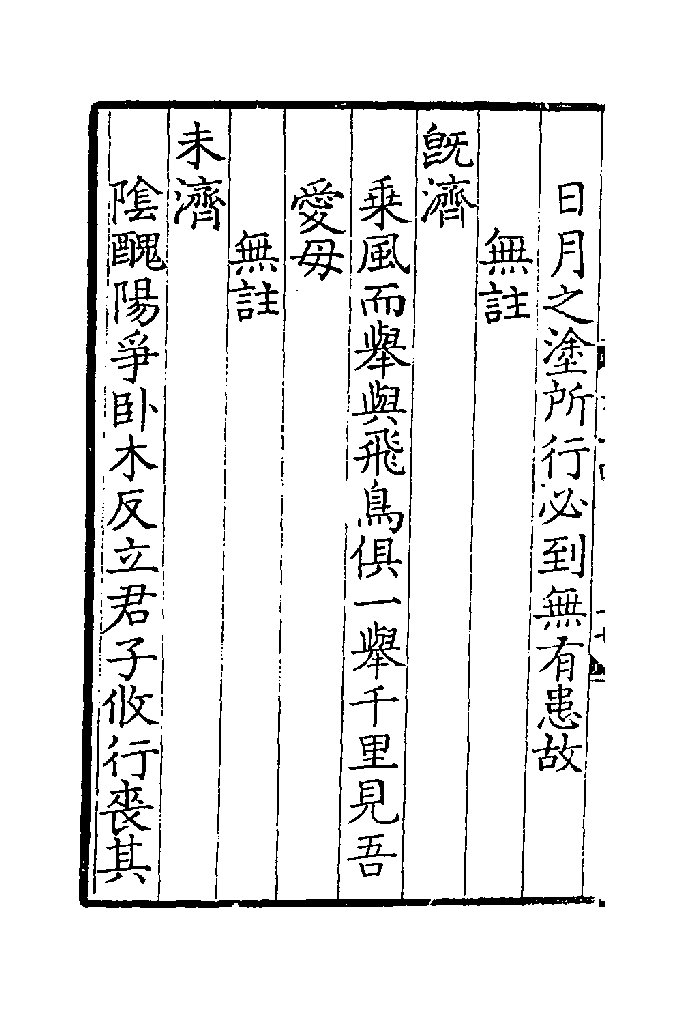 日月之塗所行必到無有患故
無註
旣濟
乗風而舉與飛鳥俱一舉千里見吾
愛母
無註
未濟
隂醜陽爭卧木反立君子攸行喪其